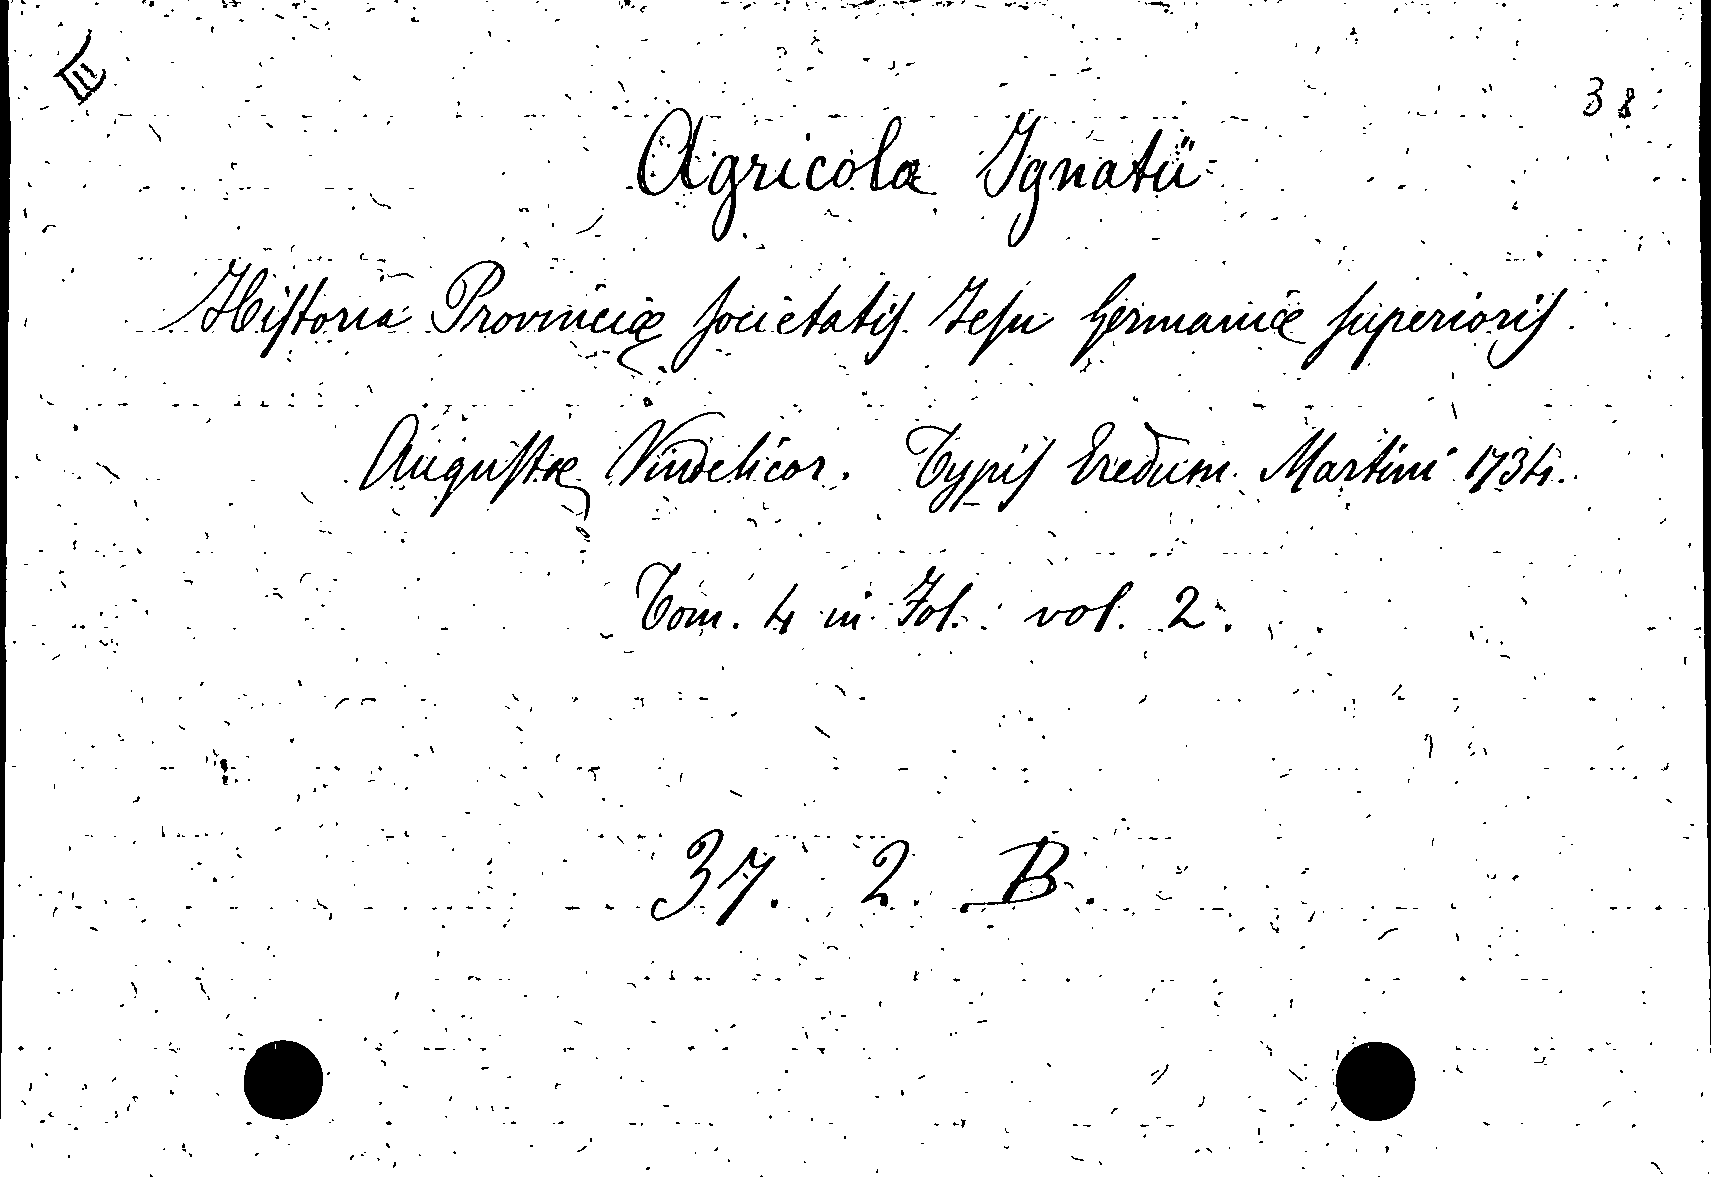 III
38
Agricolæ Ignatii
Historia Provinciæ societatis Jesu Germaniæ superioris
Augustæ Vindelicor. Typis Eredum Martini 1734.
Tom. 4 in Fol. vol. 2.
37. 2. B.